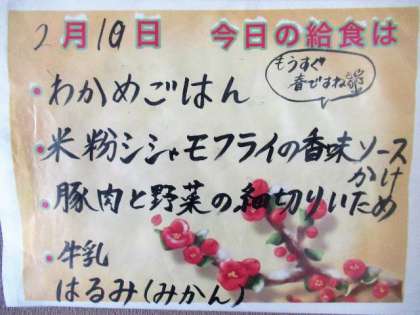 2月10日 今日の給食は
もうすぐ
春ですね
・わかめごはん
・米粉シシャモフライの香味ソース
かけ
・豚肉と野菜の細切りいため
・牛乳
はるみ(みかん)